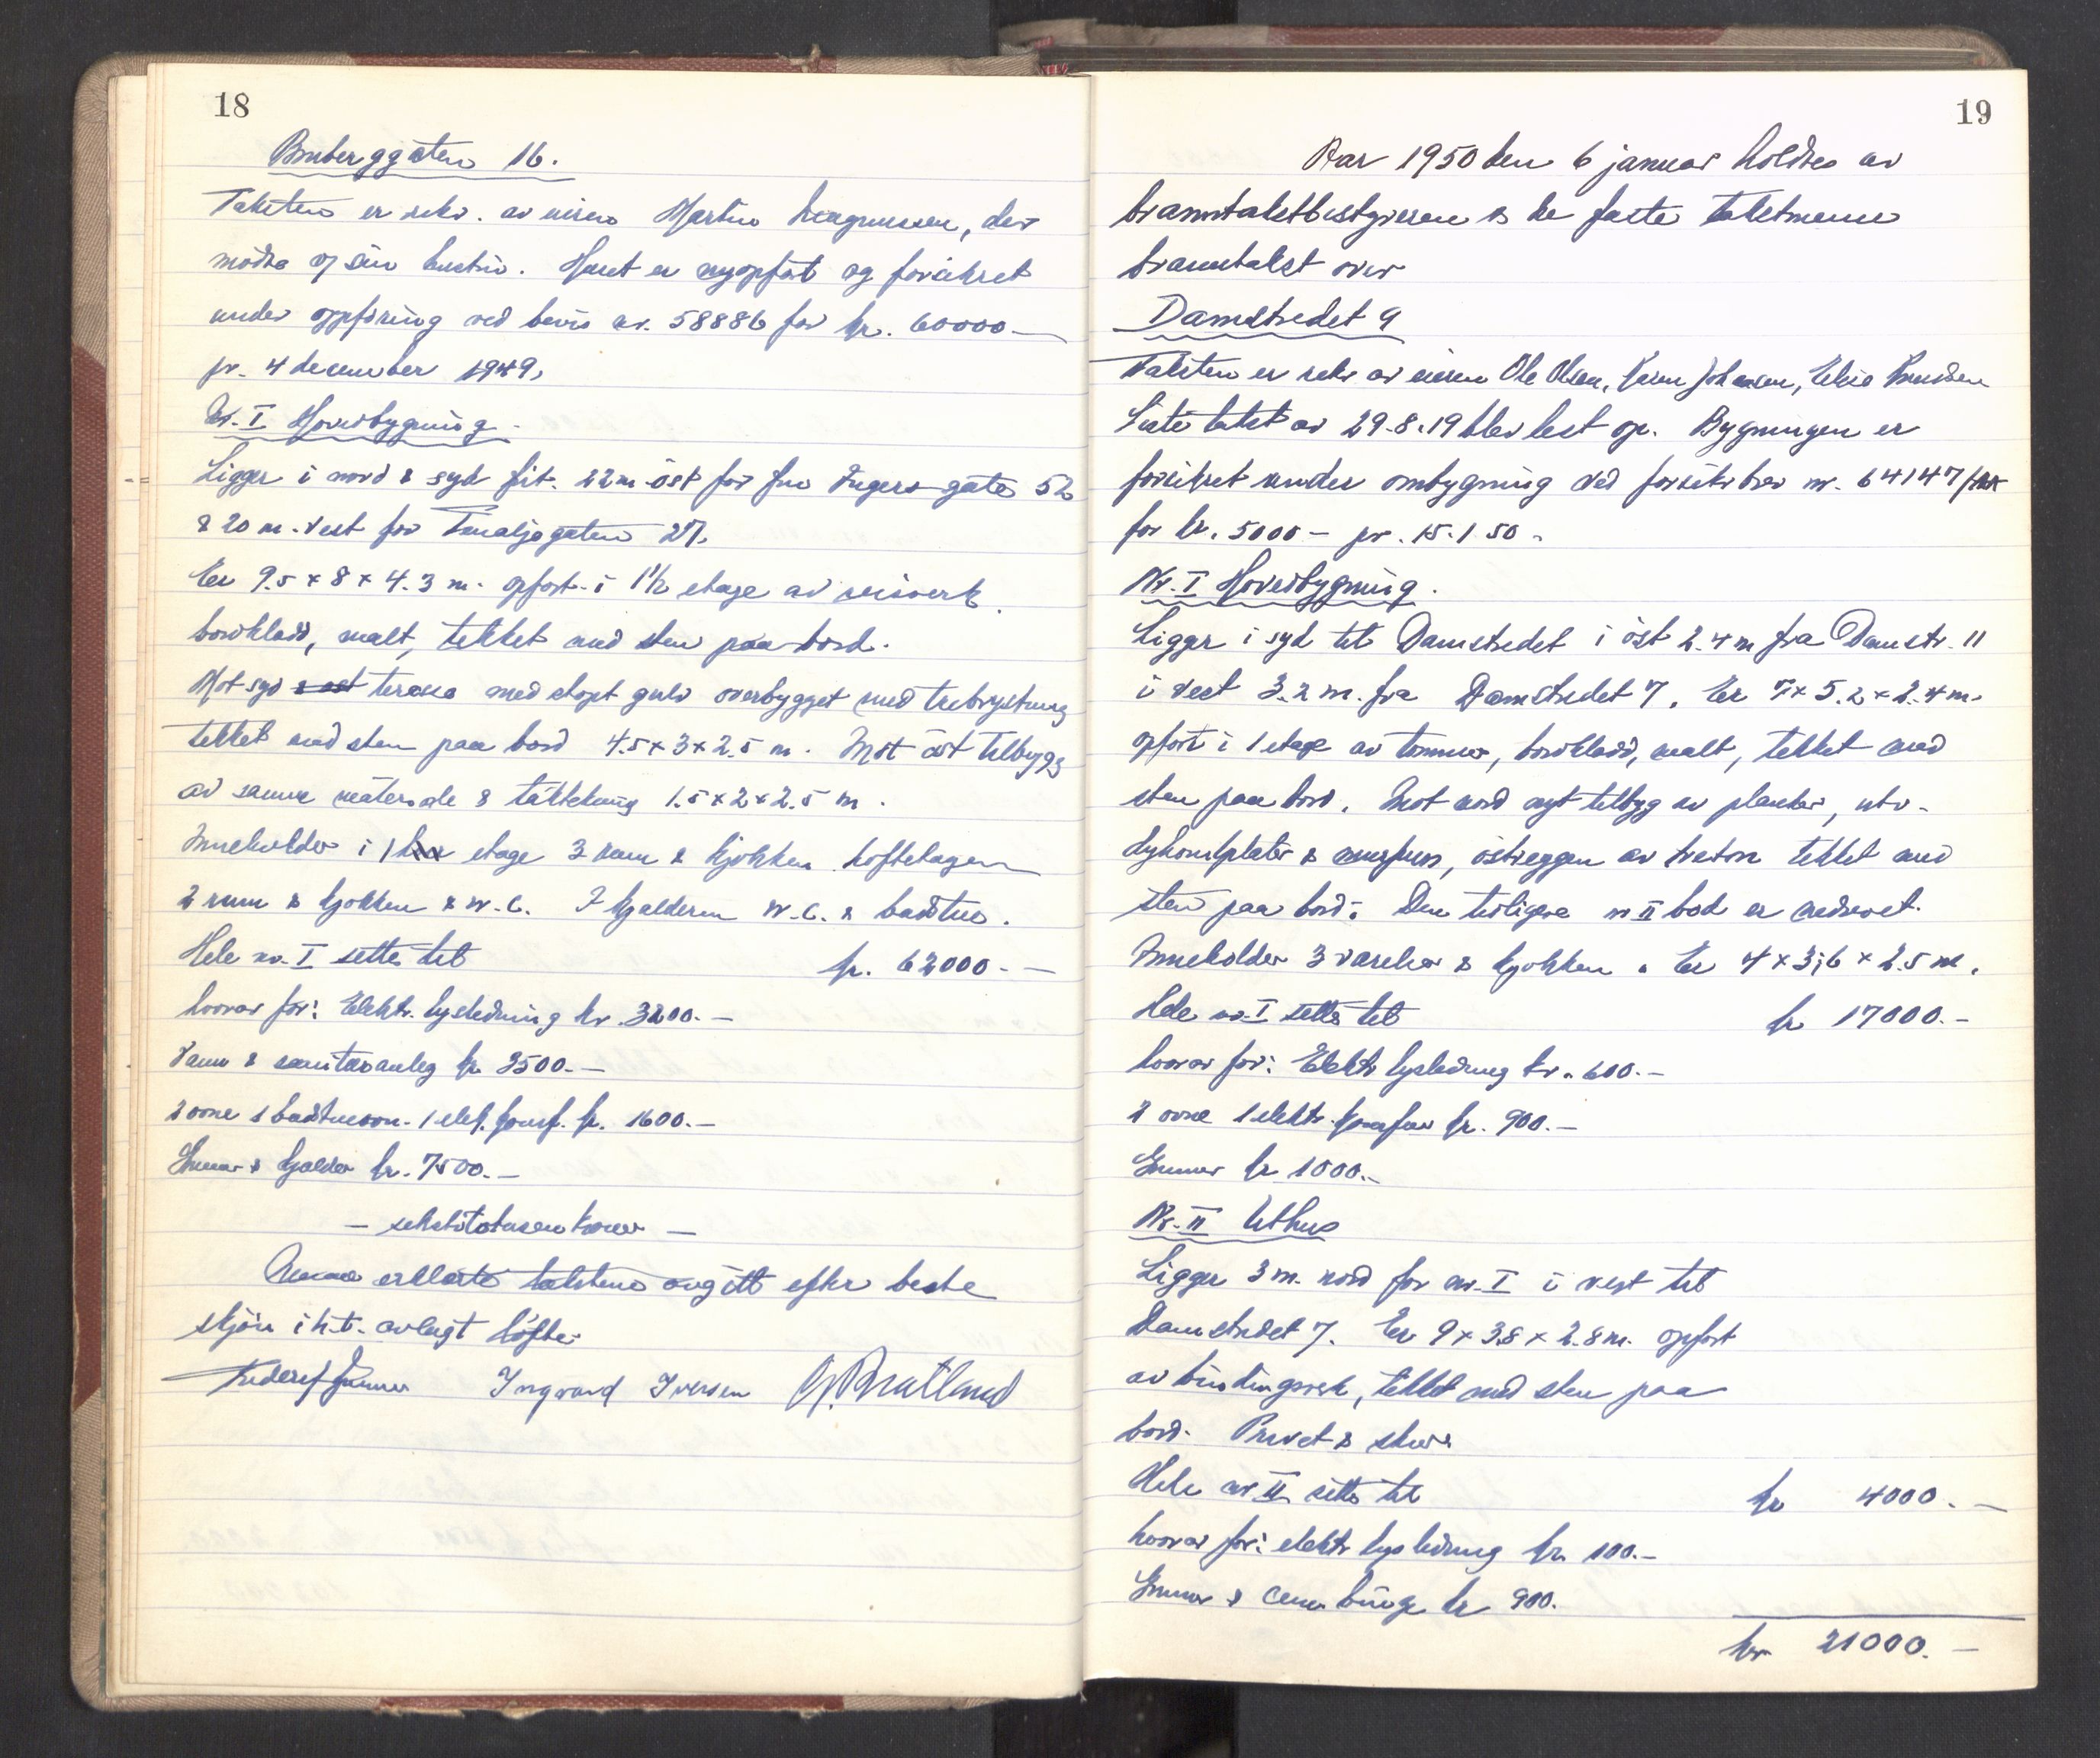 18
Bruberggaten 16.
Taksten er rekv. av eieren Martin Magnussen, der
møtte og sin hustru. Huset er nyopført og forsikret
under oppføring ved bevis nr. 58886 for kr. 60000 —
pr. 4 december 1949.
Nr. I Hovedbygning.
Ligger i nord & syd frit. 22 m øst for fru Ingers gate 52
& 20 m. vest for Tmaljegaten 27.
Er 9.5 x 8 x 4.3 m. opført i 1½ etage av reisverk
bordkledd, malt, tekket med sten paa bord.
Mot syd & øst terasse med støpt gulv overbygget med trebrystning
tekket med sten paa bord 4.5 x 3 x 2.5 m. Mot øst tilbygg
av samme materiale & tættekning 1.5 x 2 x 2.5 m.
Inneholder i 1 etage 3 rum & kjøkken loftetagen
2 rum & kjøkken & W.C. I kjælderen W.C. & badstue.
Hele nr. I settes til kr. 62000. —
hvorav for: Elektr. lysledning kr. 3200. —
Vann & sanitæranleg kr. 3500. —
2 ovne 1 badstueovn. 1 elek. komf. kr. 1600. —
Grunnmur & kjælder kr. 7500. —
— sekstitotusen kroner —
erklærte taksten avgitt efter beste
skjøn i h.t. avlagt løfte.
Ingvard Iversen O. Bratland
19
Aar 1950 den 6 januar holdtes av
branntakstbestyreren & de faste takstmenn
branntakst over
Damstredet 9
Taksten er rekv av eieren Ole Olsen, Johansen, Knudsen
Siste takst av 29-8-19 blev lest op. Bygningen er
forsikret under ombygning ved forsikrbrev nr. 64147
for kr. 5000 — pr. 15.1.50.
Nr. I Hovedbygning.
Ligger i syd til Damstredet i øst 2.4 m fra Damstr. 11
i vest 3.2 m. fra Damstredet 7. Er 7 x 5.2 x 2.4 m.
opført i 1 etage av tømmer, bordkledd, malt, tekket med
sten paa bord. Mot nord nyt tilbygg av planker, utv.
østveggen av treton tekket med
sten paa bord. Den tidligere nr II bod er nedrevet.
Inneholder 3 værelser & kjøkken. Er 4 x 3,6 x 2.5 m.
Hele nr. I settes til kr 17000. —
hvorav for: Elektr lysledning kr. 600. —
2 ovne 1 elektr. komfur kr. 900. —
Grunnmur kr 1000. —
Nr. II Uthus
Ligger 3 m. nord for nr. I i vest til
Damstredet 7. Er 9 x 3.8 x 2.8 m. opført
av bindingsverk, tekket med sten paa
bord. Privet & skur.
Hele nr II settes til kr 4000. —
hvorav for: elektr lysledning kr. 100. —
Grunnmur & binge kr 900.
kr 21000. —